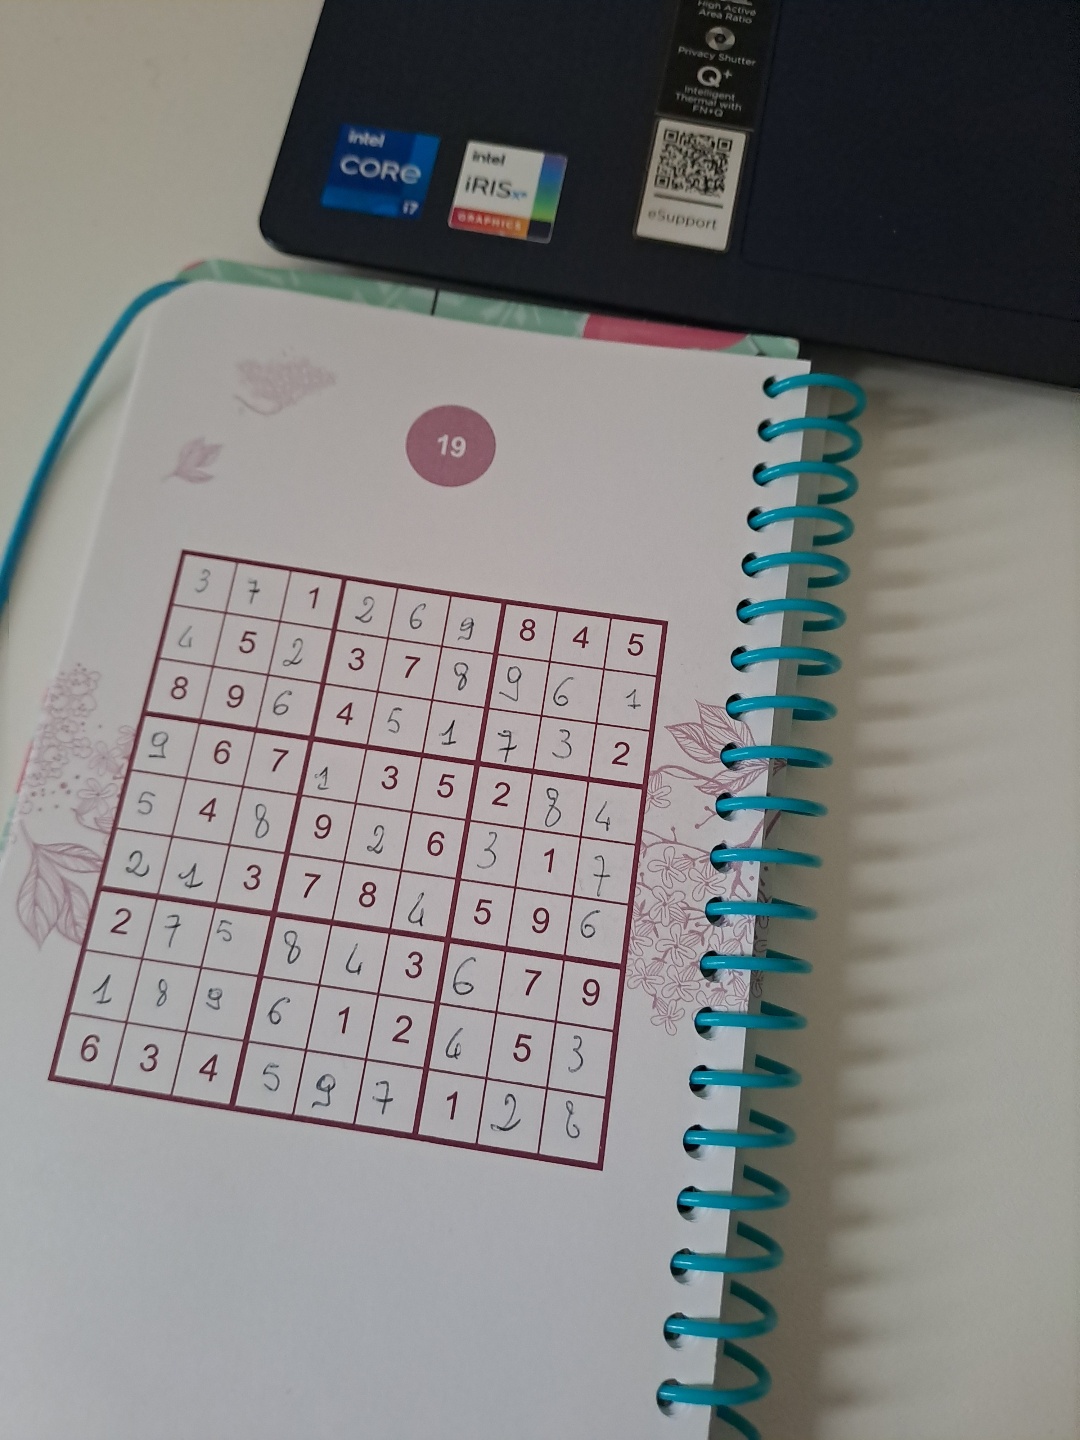 High Active
Area Ratio
Privacy Shutter
Q+
Intelligent
Thermal with
FN+Q
intel
CORe
i7
intel
iRISxe
GRAPHICS
eSupport
19
3 7 1 2 6 9 8 4 5
4 5 2 3 7 8 9 6 1
8 9 6 4 5 1 7 3 2
9 6 7 1 3 5 2 8 4
5 4 8 9 2 6 3 1 7
2 1 3 7 8 4 5 9 6
2 7 5 8 4 3 6 7 9
1 8 9 6 1 2 4 5 3
6 3 4 5 9 7 1 2 8